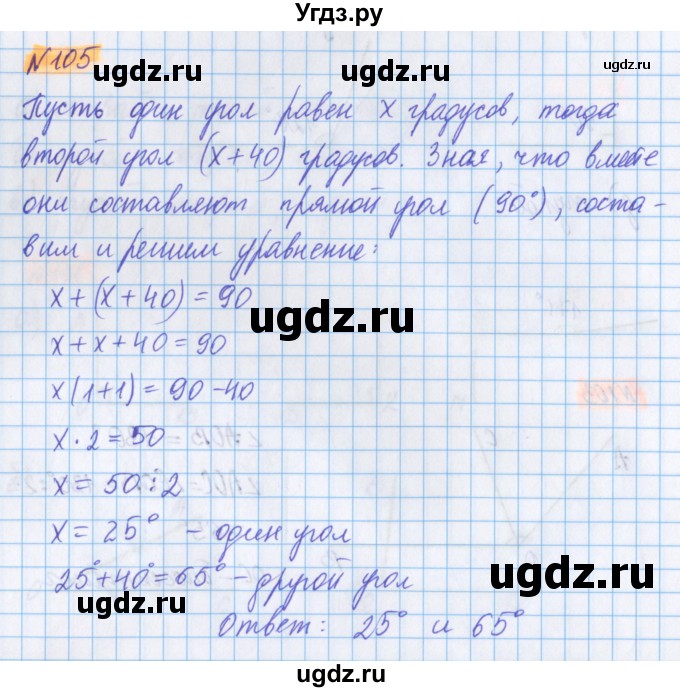 Угдз.ру
N105
ugdz.ru ugdz.ru
Пусть один угол равен x градусов, тогда
второй угол (x+40) градусов. Зная, что вместе
они составляют прямой угол (90°), соста-
вим и решим уравнение:
x+(x+40)=90
ugdz.ru
x+x+40=90
x(1+1)=90-40
x·2=50
x=50:2
x=25° - один угол
ugdz.ru
25°+40°=65° - другой угол
ugdz.ru
Ответ: 25° и 65°
ugdz.ru